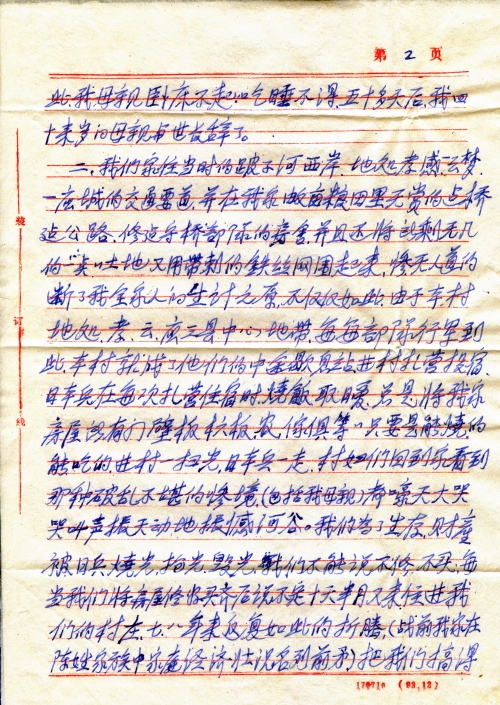 第 2 页
此,我母亲卧床不起,吃睡不得,五十多天后,我四
十来岁的母亲与世长辞了。
二、我们家住当时的跛子河西岸,地处孝感、云梦、
应城的交通要道,并在我家做亩粮田里无赏的占桥
造公路,修造守桥部队的营舍,并且还将所剩无几
的一点土地又用带刺的铁丝网围起来,惨无人道的
断了我全家人的生计之源,不仅仅如此,由于本村
地处、孝、云、应三县中心地带,每每部队行军到
此,本村就成了他们的中途歇息站进村扎营投宿,
日本兵在每次扎营住宿时,烧飯取暖,总是将我家
房屋所有门壁板,衣、傢俱等,只要是能烧的
能吃的进村一扫光,日本兵一走,村如们回到家看到
那种破乱不堪的惨境,(包括我母亲)都嚎天大哭
哭叫声振天动地振憾河谷。我们为了生存,财产
被日兵烧光,抢光,毁光,我们不能说不修、不买,每
当我们将房屋修好买齐后说不定十天半月又来侵进我
们的村庄,七、八年来反复如此的折腾,(战前我家在
陈姓家族中家庭经济状况名列前矛)把我们搞得
装
订
线
170710 (93.12)